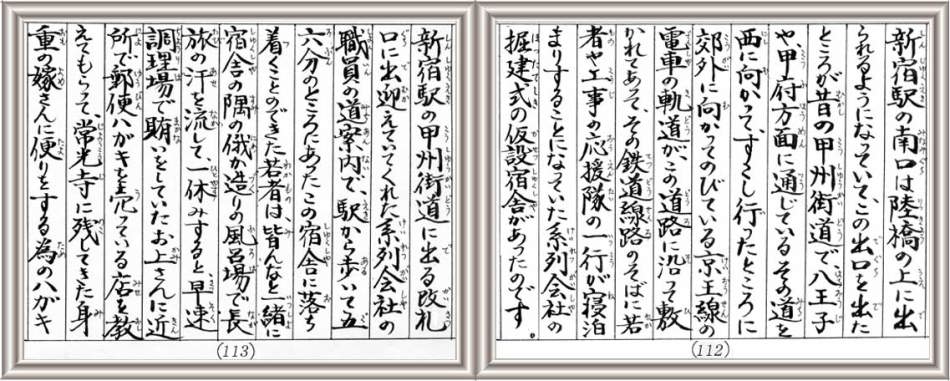 新宿駅の南口は陸橋の上に出
られるようになっていて、この出口を出た
ところが昔の甲州街道で八王子
や、甲府方面に通じているその道を
西に向かって、すぐし行ったところに
郊外に向かってのびている京王線の
電車の軌道が、この道路に沿って敷
かれてあって、その鉄道線路のそばに若
者や工事の応援隊の一行が寝泊
まりすることになっていた系列会社の
掘建式の仮設宿舎があったのです。
(112)
新宿駅の甲州街道に出る改札
口に出迎えていてくれた系列会社の
職員の道案内で、駅から歩いて五
六分のところにあったこの宿舎に落ち
着くことのできた若者は、皆んなと一緒に
宿舎の隅の俄か造りの風呂場で長
旅の汗を流して、一休みすると、早速
調理場で賄いをしていたお上さんに近
所で郵便ハガキを売っている店を教
えてもらって、常光寺に残してきた身
重の嫁さんに便りをする為のハガキ
(113)